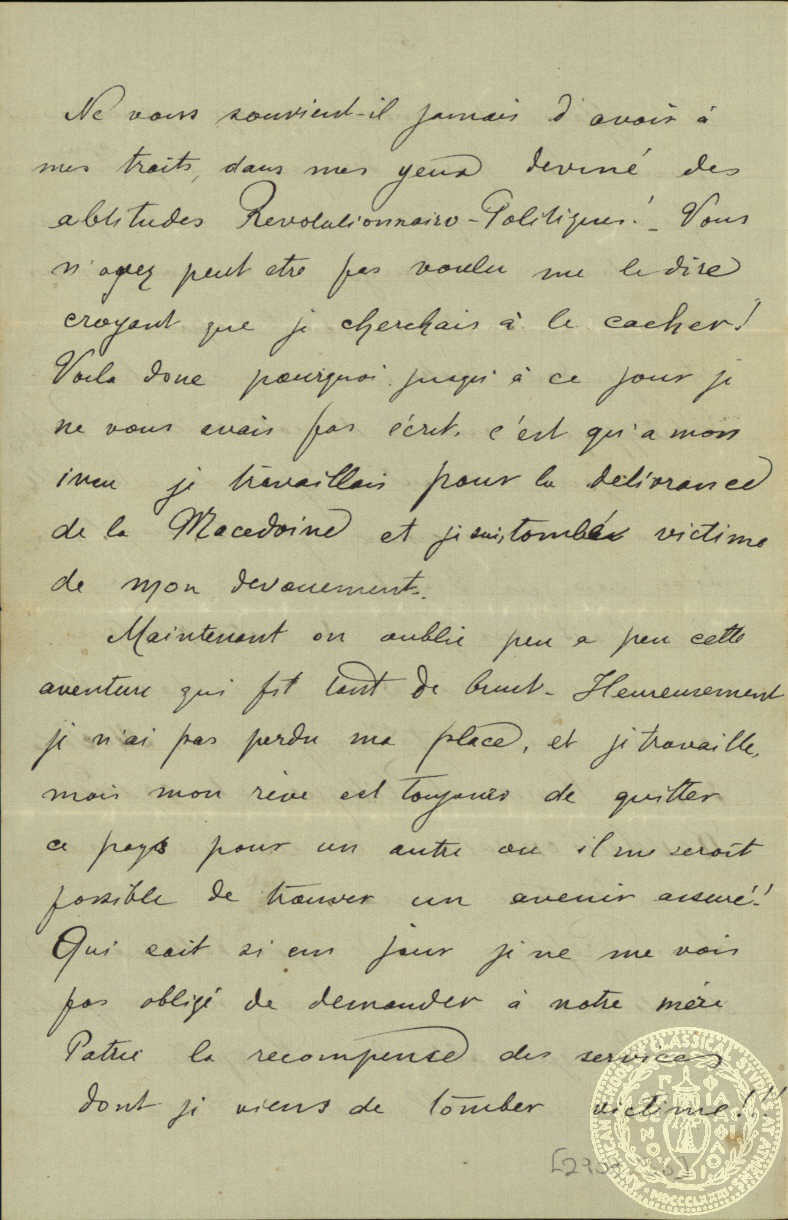 Ne vous souvient-il jamais d'avoir à
mes traits, dans mes yeux deviné des
abtitudes Revolutionnairo-Politiques! - Vous
n'avez peut etre pas voulu me le dire
croyant que je cherchais à le cacher!
Voila donc pourquoi jusqu'à ce jour je
ne vous avais pas écrit, c'est qu'a mon
inçu je travaillais pour la delivrance
de la Macedoine et je suis tombé victime
de mon devouement.
Maintenant on oublie peu a peu cette
aventure qui fit tant de bruit - Heureusement
je n'ai pas perdu ma place, et je travaille,
mais mon rêve est toujours de quitter
ce pays pour un autre ou il me serait
possible de trouver un avenir assuré!!
Qui sait si un jour je ne me vois
pas obligé de demander à notre mère
Patrie la recompense des services
dont je viens de tomber victime!!!
AMERICAN SCHOOL OF CLASSICAL STUDIES AT ATHENS
MDCCCLXXXI